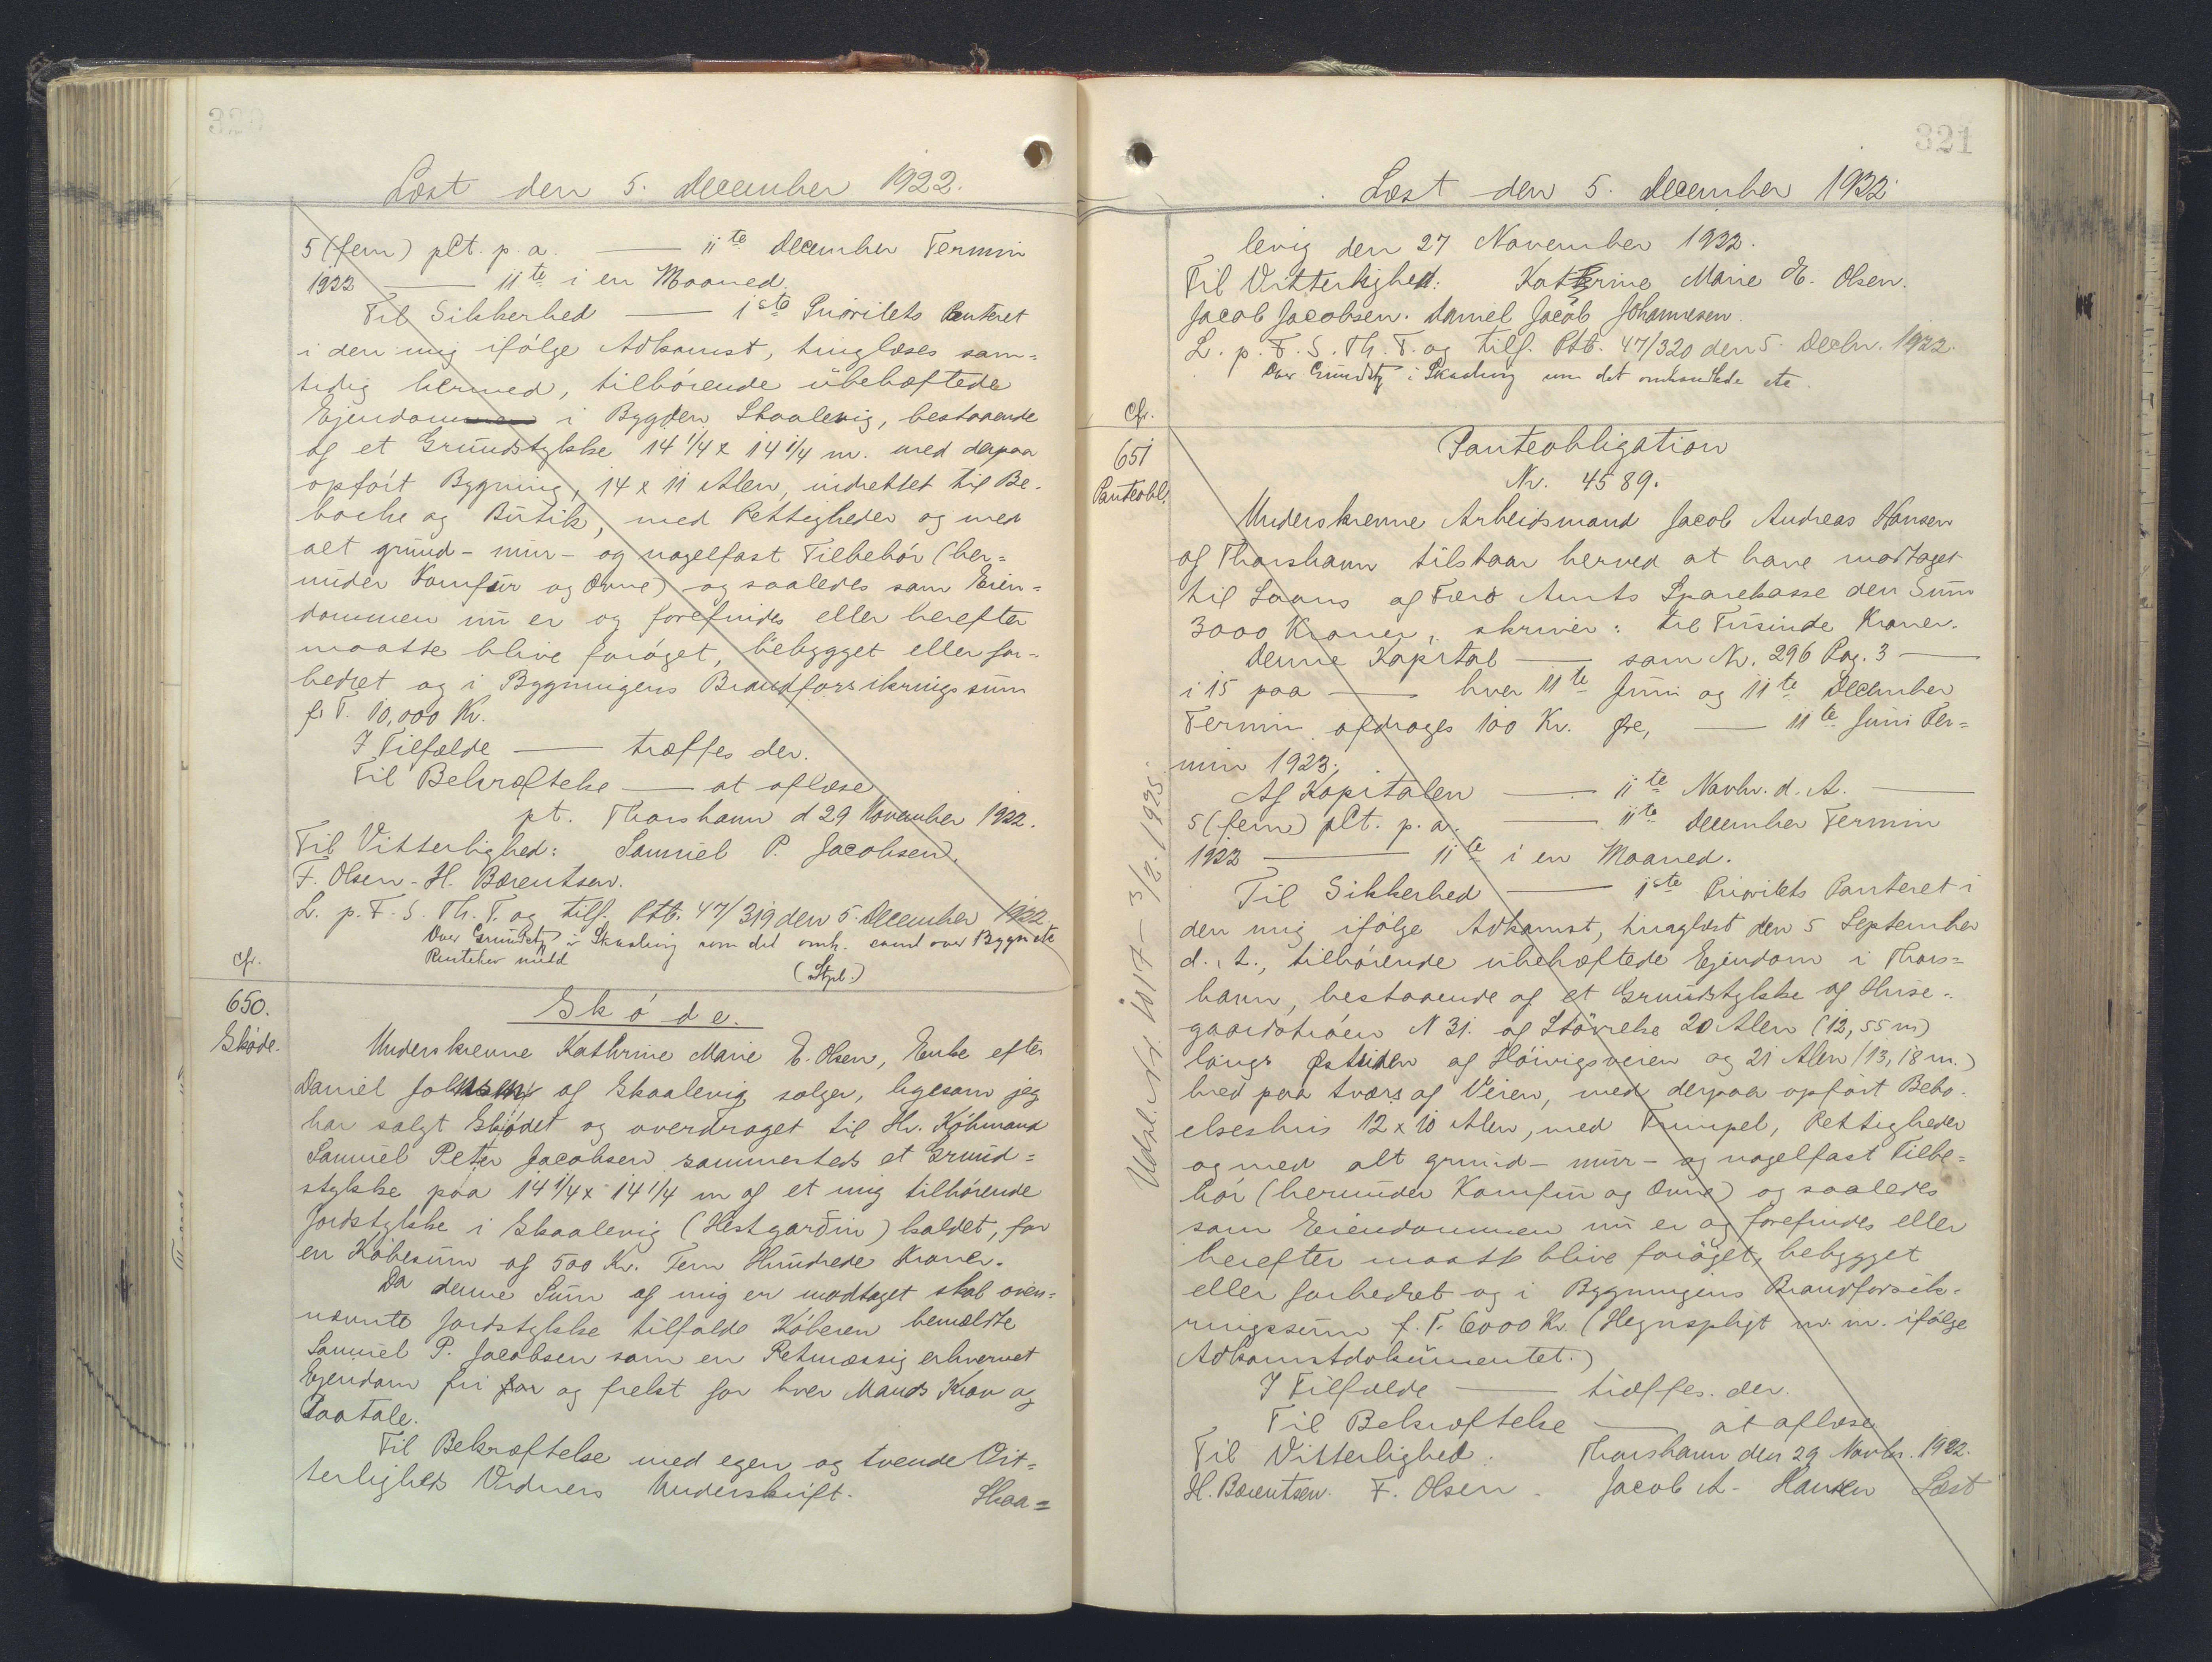 320
Læst den 5. December 1922.
5 (fem) pCt. p. a. —— 11te December Termin
1922 —— 11te i en Maaned.
Til Sikkerhed —— 1ste Prioritets Panteret
i den mig ifølge Adkomst, tinglæses sam=
tidig hermed, tilhørende übehæftede
Ejendom i Bygden Skaalevig, bestaaende
af et Grundstykke 14 1/4 x 14 1/4 m. med derpaa
opført Bygning, 14 x 11 Alen, indrettet til Be-
boelse og Butik, med Rettigheder og med
alt grund- mur- og nagelfast Tilbehør (her=
under Komfur og Ovne) og saaledes som Eien=
dommen nu er og forefindes eller herefter
maatte blive forøget, bebygget eller for-
bedret og i Bygningens Brandforsikringssum
f. T. 10,000 Kr.
I Tilfælde —— træffes der.
Til Bekræftelse —— at aflæse
pt. Thorshavn d 29 November 1922.
Til Vitterlighed: Samuel P. Jacobsen.
F. Olsen - H. Bærentsen.
L. p. F. S. Th. T. og tilf. Ptb. 47/319 den 5. December 1922.
Over Grundstk i Skaalevig som det omh. samt over Bygn etc
(Stpl.)
cfr.
650.
Skøde.
Skøde.
Underskrevne Kathrine Marie E. Olsen, Enke efter
Daniel Johnsen af Skaalevig sælger, ligesom jeg
har solgt Skødet og overdraget til Hr. Købmand
Samuel Peter Jacobsen sammesteds et Grund=
stykke paa 14 1/4 x 14 1/4 m af et mig tilhørende
Jordstykke i Skaalevig (Hestgarðin) kaldet, for
en Købesum af 500 Kr. Fem Hundrede Kroner.
Da denne Sum af mig er modtaget skal oven=
nævnte Jordstykke tilfalde Køberen bemældte
Samuel P. Jacobsen som en Retmæssig erhvervet
Ejendom fri for og frelst for hver Mands Krav og
Paatale.
Til Bekræftelse med egen og tvende Vit=
terligheds Vidners Underskrift. Skaa=
321
Læst den 5. December 1922
levig den 27 November 1922.
Til Vitterlighed: Kathrine Marie E. Olsen.
Jacob Jacobsen. Daniel Jacob Johannesen.
L. p. F. S. Th. T. og tilf. Ptb. 47/320 den 5. Decbr. 1922.
Over Grundstk i Skaalevig som det omhandlede etc.
cfr.
651
Panteobl.
Panteobligation
Nr. 4589.
Underskrevne Arbeidsmand Jacob Andreas Hansen
af Thorshavn tilstaar herved at have modtaget
til Laans af Færø Amts Sparekasse den Sum
3000 Kroner, skriver: tre Tusinde Kroner.
Denne Kapital —— som Nr. 296 Pag. 3 ——
i 15 paa —— hver 11te Juni og 11te December
Termin afdrages 100 Kr. Øre, —— 11te Juni Ter=
min 1923;
Af Kapitalen —— 11te Novbr. d. A. ——
5 (fem) pCt. p. a. —— 11te December Termin
1922 —— 11te i en Maaned.
Til Sikkerhed —— 1ste Prioritets Panteret i
den mig ifølge Adkomst, tinglæst den 5 September
d. A., tilhørende ubehæftede Ejendom i Thors=
havn, bestaaende af et Grundstykke af Huse-
gaardstrøen N 31. af Størrelse 20 Alen (12,55 m)
langs Østsiden af Høivigsveien og 21 Alen (13,18 m.)
bred paa tværs af Veien, med derpaa opført Bebo-
elseshus 12 x 10 Alen, med Trumpel, Rettigheder
og med alt grund- mur- og nagelfast Tilbe=
hør (herunder Komfur og Ovne) og saaledes
som Eiendommen nu er og forefindes eller
herefter maatte blive forøget, bebygget
eller forbedret og i Bygningens Brandforsik-
ringssum f. T. 6000 Kr. (Hegnspligt m. m. ifølge
Adkomstdokumentet.)
I Tilfælde —— træffes der.
Til Bekræftelse —— at aflæse
Til Vitterlighed. Thorshavn den 29 Novbr. 1922.
H. Bærentsen. F. Olsen. Jacob A. Hansen Læst
Udsl. Nr. 1017 - 3/2. 1925.